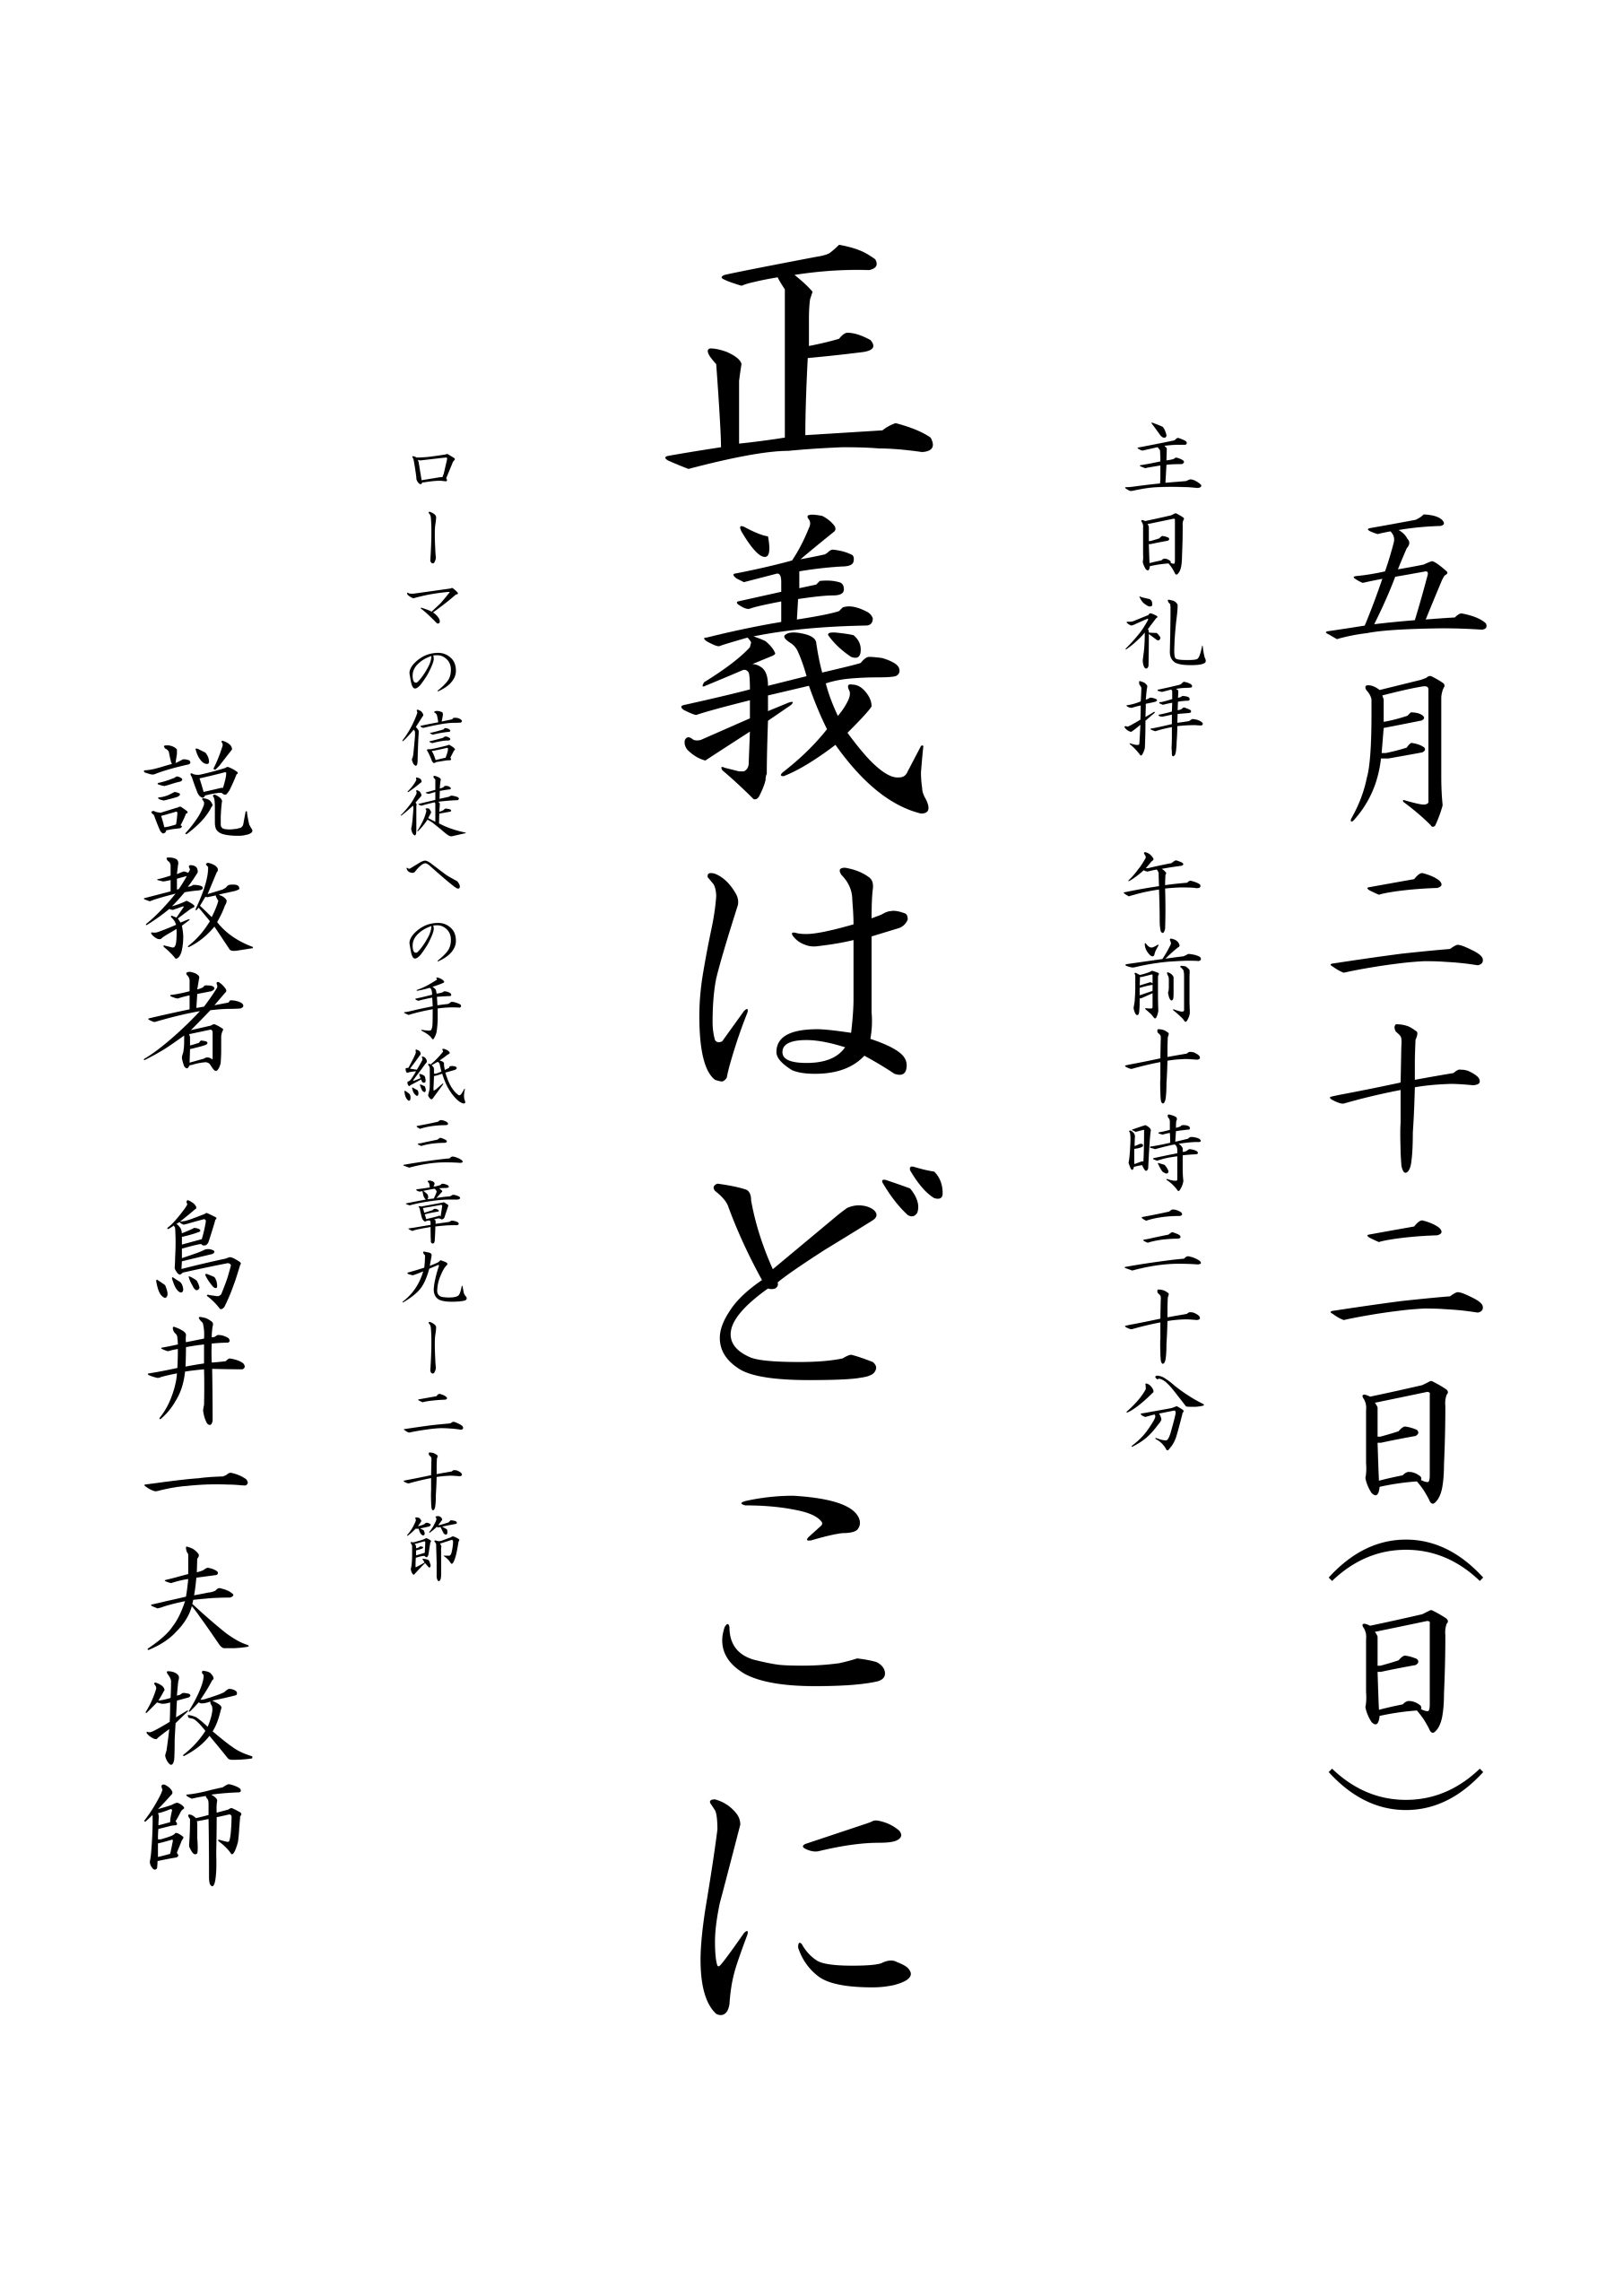 五月二十二日(日)
主日礼拝　午前十時三十分
正義はどこに
ローマの信徒への手紙三章九ー二十節
説教者　烏井一夫牧師